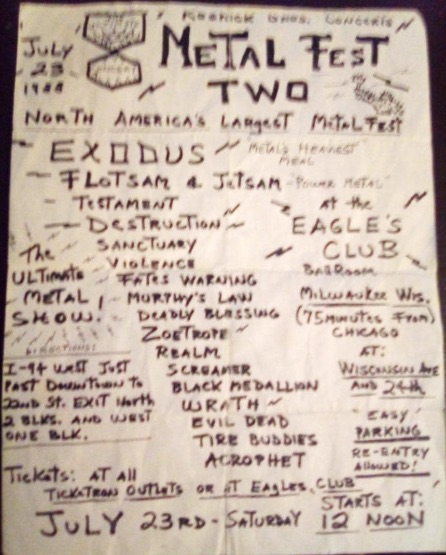 KOSNICK BROS. CONCERTS
JULY
23
1988
METAL FEST
TWO
NORTH AMERICA'S LARGEST METALFEST
EXODUS
"METAL'S HEAVIEST
MEAL
FLOTSAM & JETSAM "POWER METAL"
TESTAMENT
DESTRUCTION
SANCTUARY
VIOLENCE
FATES WARNING
MURPHY'S LAW
DEADLY BLESSING
ZOETROPE
REALM
SCREAMER
BLACK MEDALLION
WRATH
EVIL DEAD
TIRE BUDDIES
ACROPHET
AT the
EAGLE'S
CLUB
BALLROOM
MILWAUKEE WIS.
(75 MINUTES FROM)
CHICAGO
AT:
WISCONSIN AVE
AND 24th
"EASY"
PARKING
RE-ENTRY
ALLOWED!
The
ULTIMATE
METAL
SHOW!
DIRECTIONS:
I-94 WEST JUST
PAST DOWNTOWN TO
22ND ST. EXIT NORTH
2 BLKS. AND WEST
ONE BLK.
TICKETS: AT ALL
TICKETRON OUTLETS OR AT EAGLES CLUB
STARTS AT:
JULY 23RD - SATURDAY 12 NOON